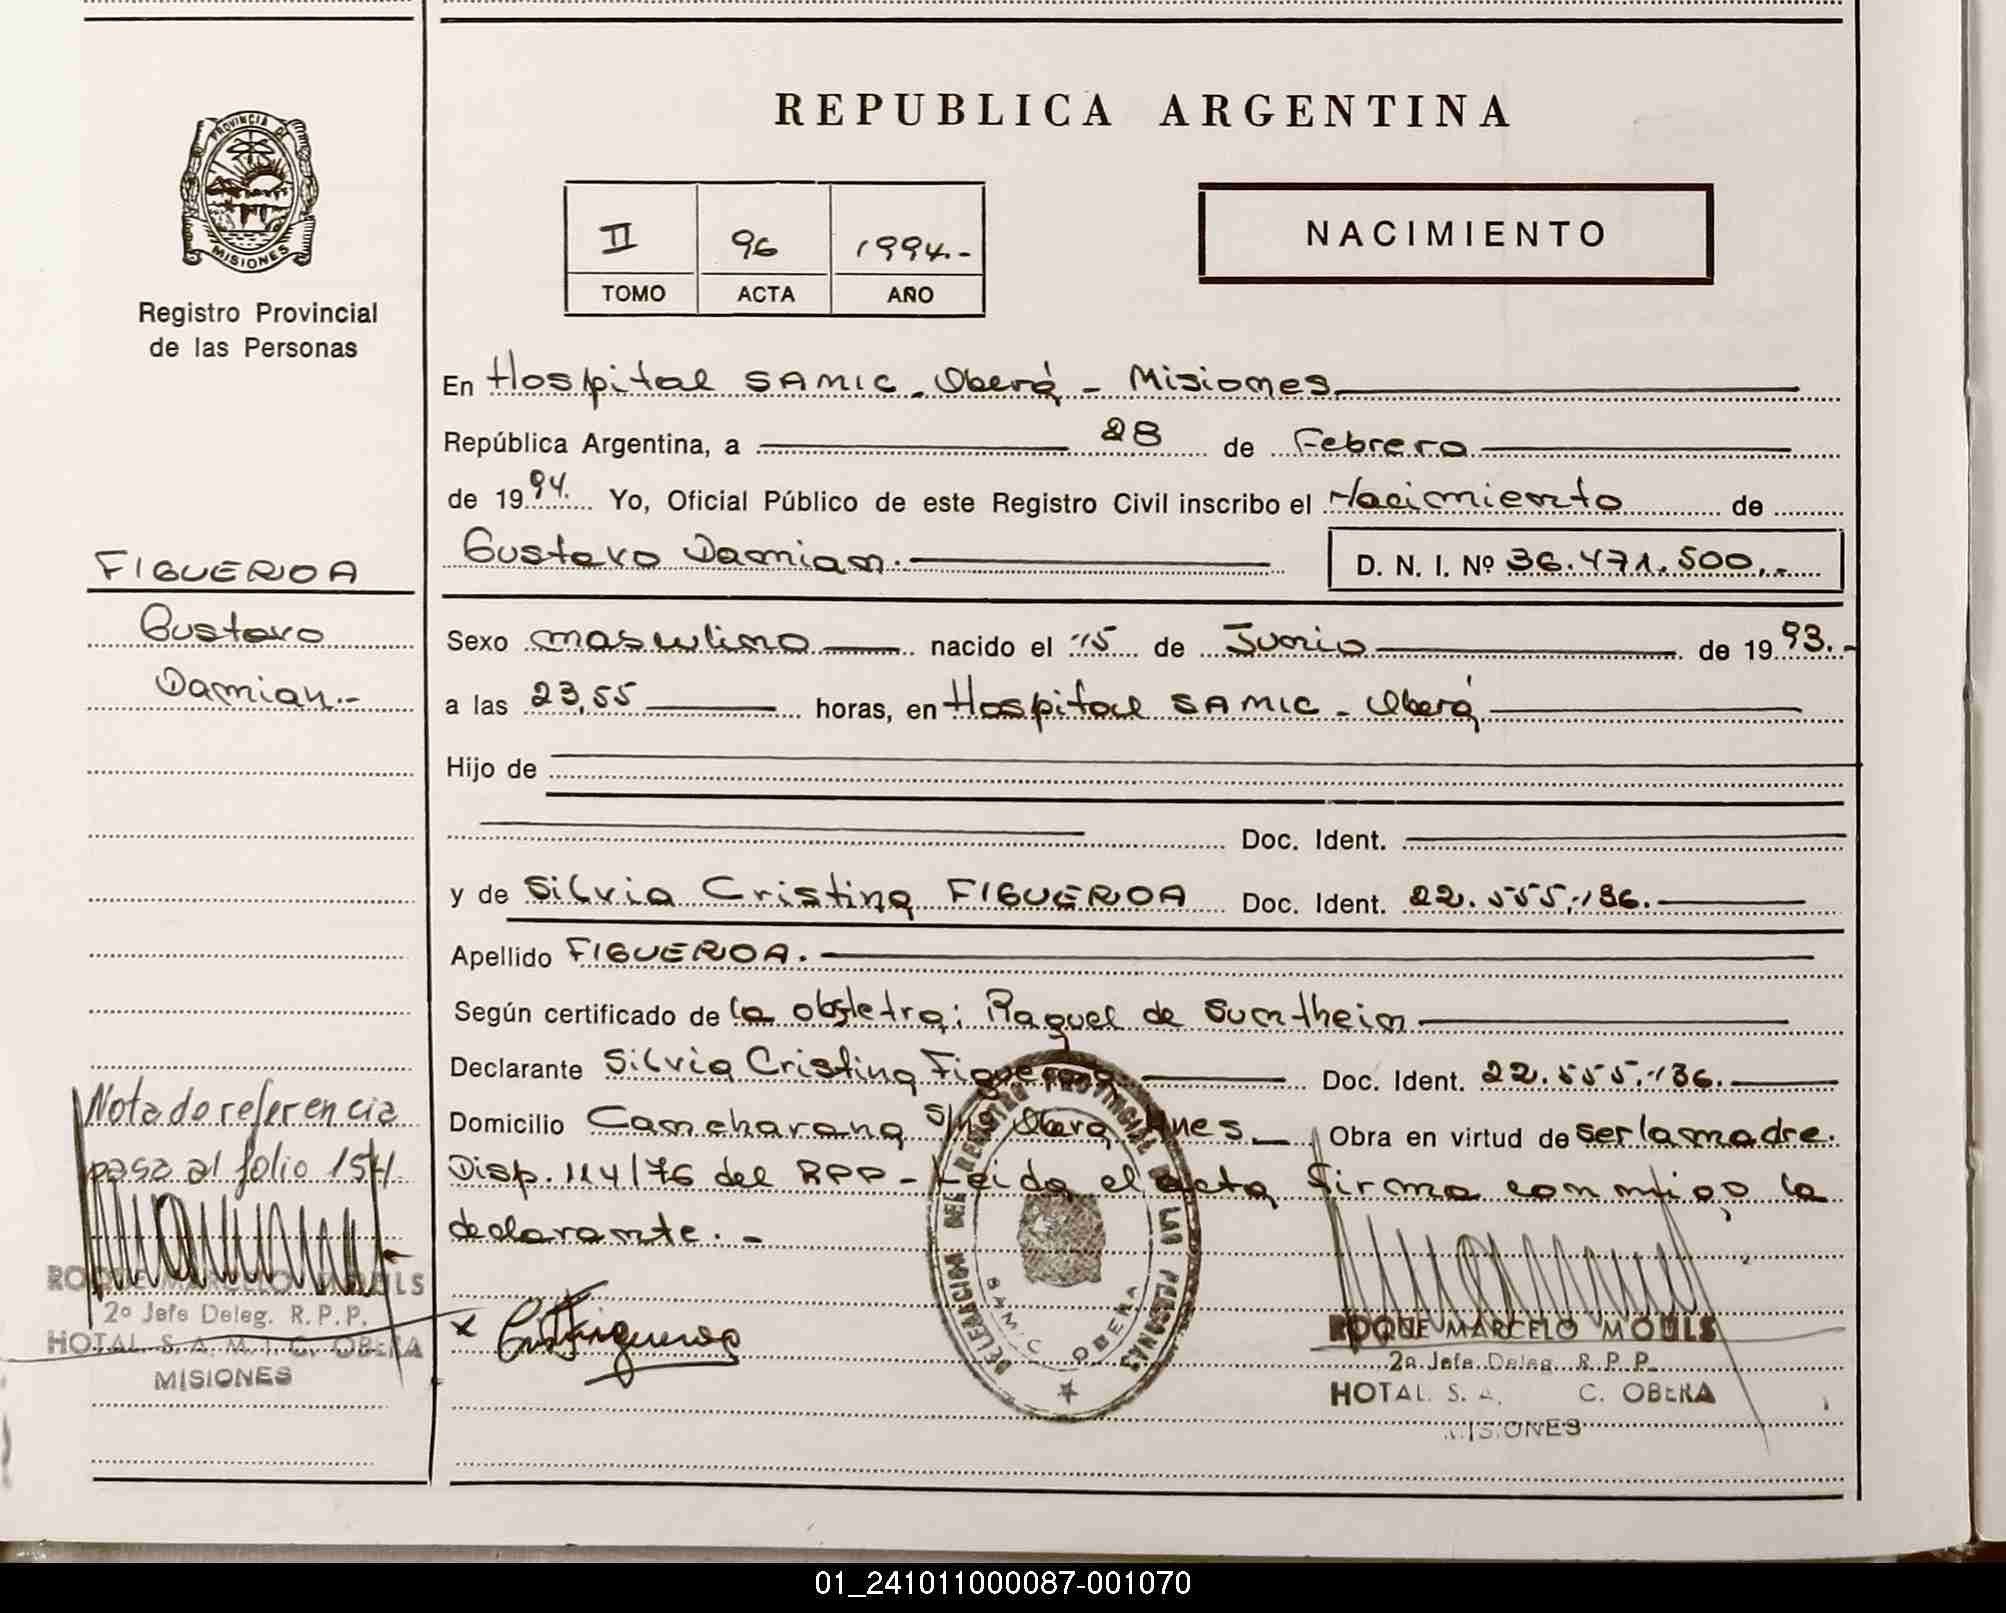 REPUBLICA ARGENTINA
PROVINCIA DE
MISIONES
Registro Provincial
de las Personas
II 96 1994.-
TOMO ACTA AÑO
NACIMIENTO
En Hospital SAMIC - Oberá - Misiones
República Argentina, a 28 de Febrero
de 1994. Yo, Oficial Público de este Registro Civil inscribo el Nacimiento de
Gustavo Damian. D. N. I. Nº 36.471.500.-
FIGUEROA
Gustavo
Damian.-
Sexo masculino nacido el 15 de Junio de 1993.-
a las 23,55 horas, en Hospital SAMIC - Oberá
Hijo de
Doc. Ident.
y de Silvia Cristina FIGUEROA Doc. Ident. 22.555.136.
Apellido FIGUEROA.
Según certificado de la obstetra: Raquel de
Declarante Silvia Cristina Figueroa Doc. Ident. 22.555.136.
Domicilio S/Nº Oberá Mnes Obra en virtud de ser la madre.
Disp. 114/76 del RPP - Leida el acta firma conmigo la
declarante. -
Nota de referencia
pasa al folio 154.
ROQUE MARCELO MOULS
2º Jefe Deleg. R. P. P.
HOTAL. S. A. M. I. C. OBERA
MISIONES
x Figueroa
DELEGACION DEL REGISTRO PROVINCIAL DE LAS PERSONAS
SAMIC OBERA
ROQUE MARCELO MOULS
2º Jefe Deleg. R. P. P.
HOTAL. S. A. C. OBERA
MISIONES
01_241011000087-001070